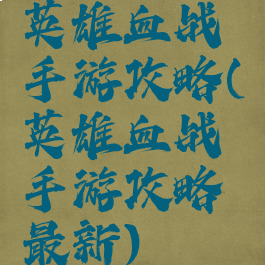 英雄血战
手游攻略(
英雄血战
手游攻略
最新)